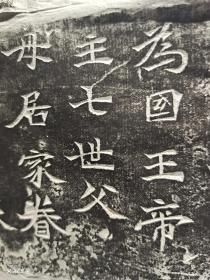 為國王帝
主七世父
母居家眷